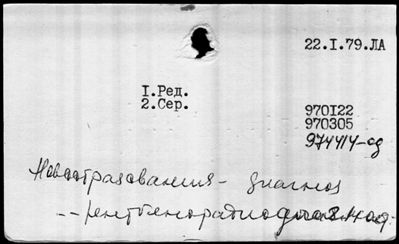 22.I.79.ЛА
I.Ред.
2.Сер.
970I22
970305
974414-од
Новообразования - диагноз
-- рентгенорадиодиагност.